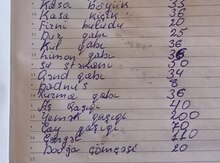 Kasa böyük 35
Kasa kiçik 36
Firni buludu 20
Duz qabı 25
Kul qabı 36
Limon qabı 36
Su stəkanı 30
Qənd qabı 34
Padnus 8
Xurma qabı 36
Aş qaşığı 40
Yemək qaşığı 200
Çay qaşığı 70
Çəngəl
Dovğa çömçəsi 20